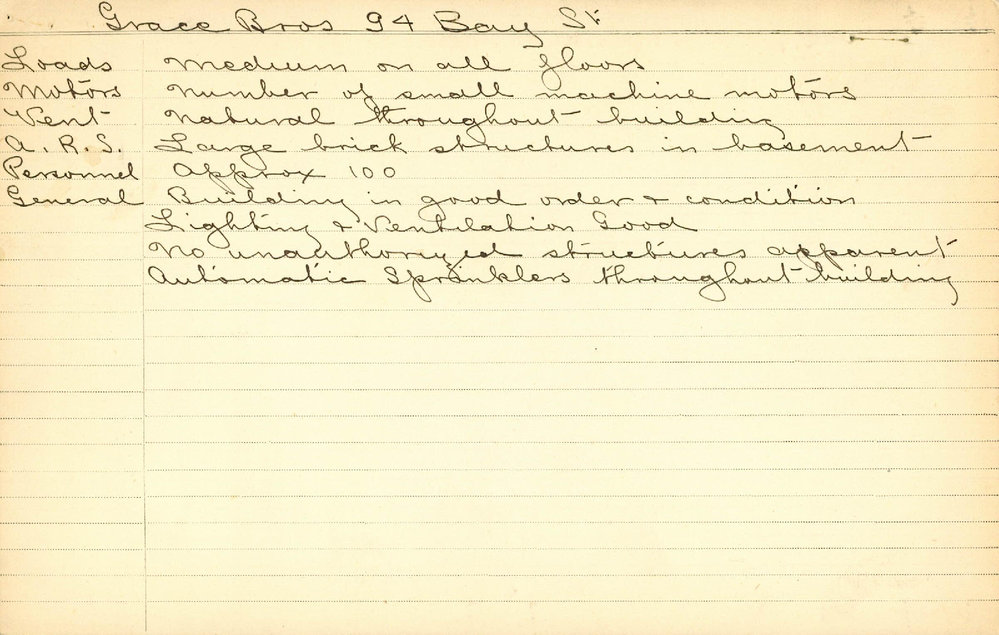 Grace Bros 94 Bay St.
Loads Medium on all floors
Motors Number of small machine motors
Vent Natural throughout building
A.R.S. Large brick structures in basement
Personnel Approx 100
General Building in good order & condition
Lighting & Ventilation Good
No unauthorized structures apparent
Automatic Sprinklers throughout building